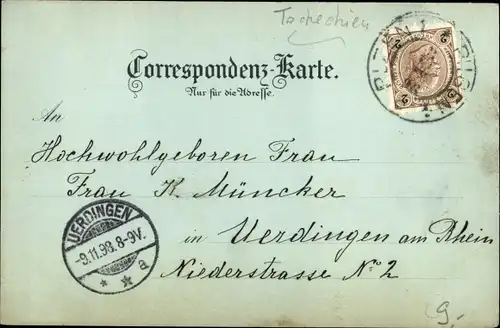 Tschechien
Correspondenz-Karte.
Nur für die Adresse.
PILSEN 1
2 2
An
Hochwohlgeboren Frau
Frau K. Müncker
in Uerdingen am Rhein
Niederstrasse No 2
UERDINGEN
-9.11.98. 8-9V.
* * a
9.-